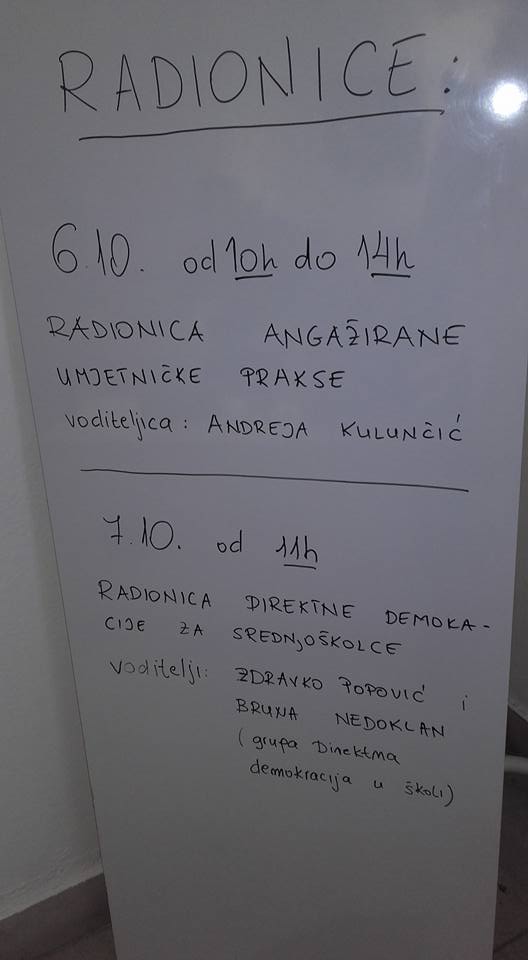 RADIONICE:
6.10. od 10h do 14h
RADIONICA ANGAŽIRANE
UMJETNIČKE PRAKSE
voditeljica: ANDREJA KULUNČIĆ
7.10. od 11h
RADIONICA DIREKTNE DEMOKA-
CIJE ZA SREDNJOŠKOLCE
voditelji: ZDRAVKO POPOVIĆ i
BRUNA NEDOKLAN
(grupa Direktna
demokracija u školi)